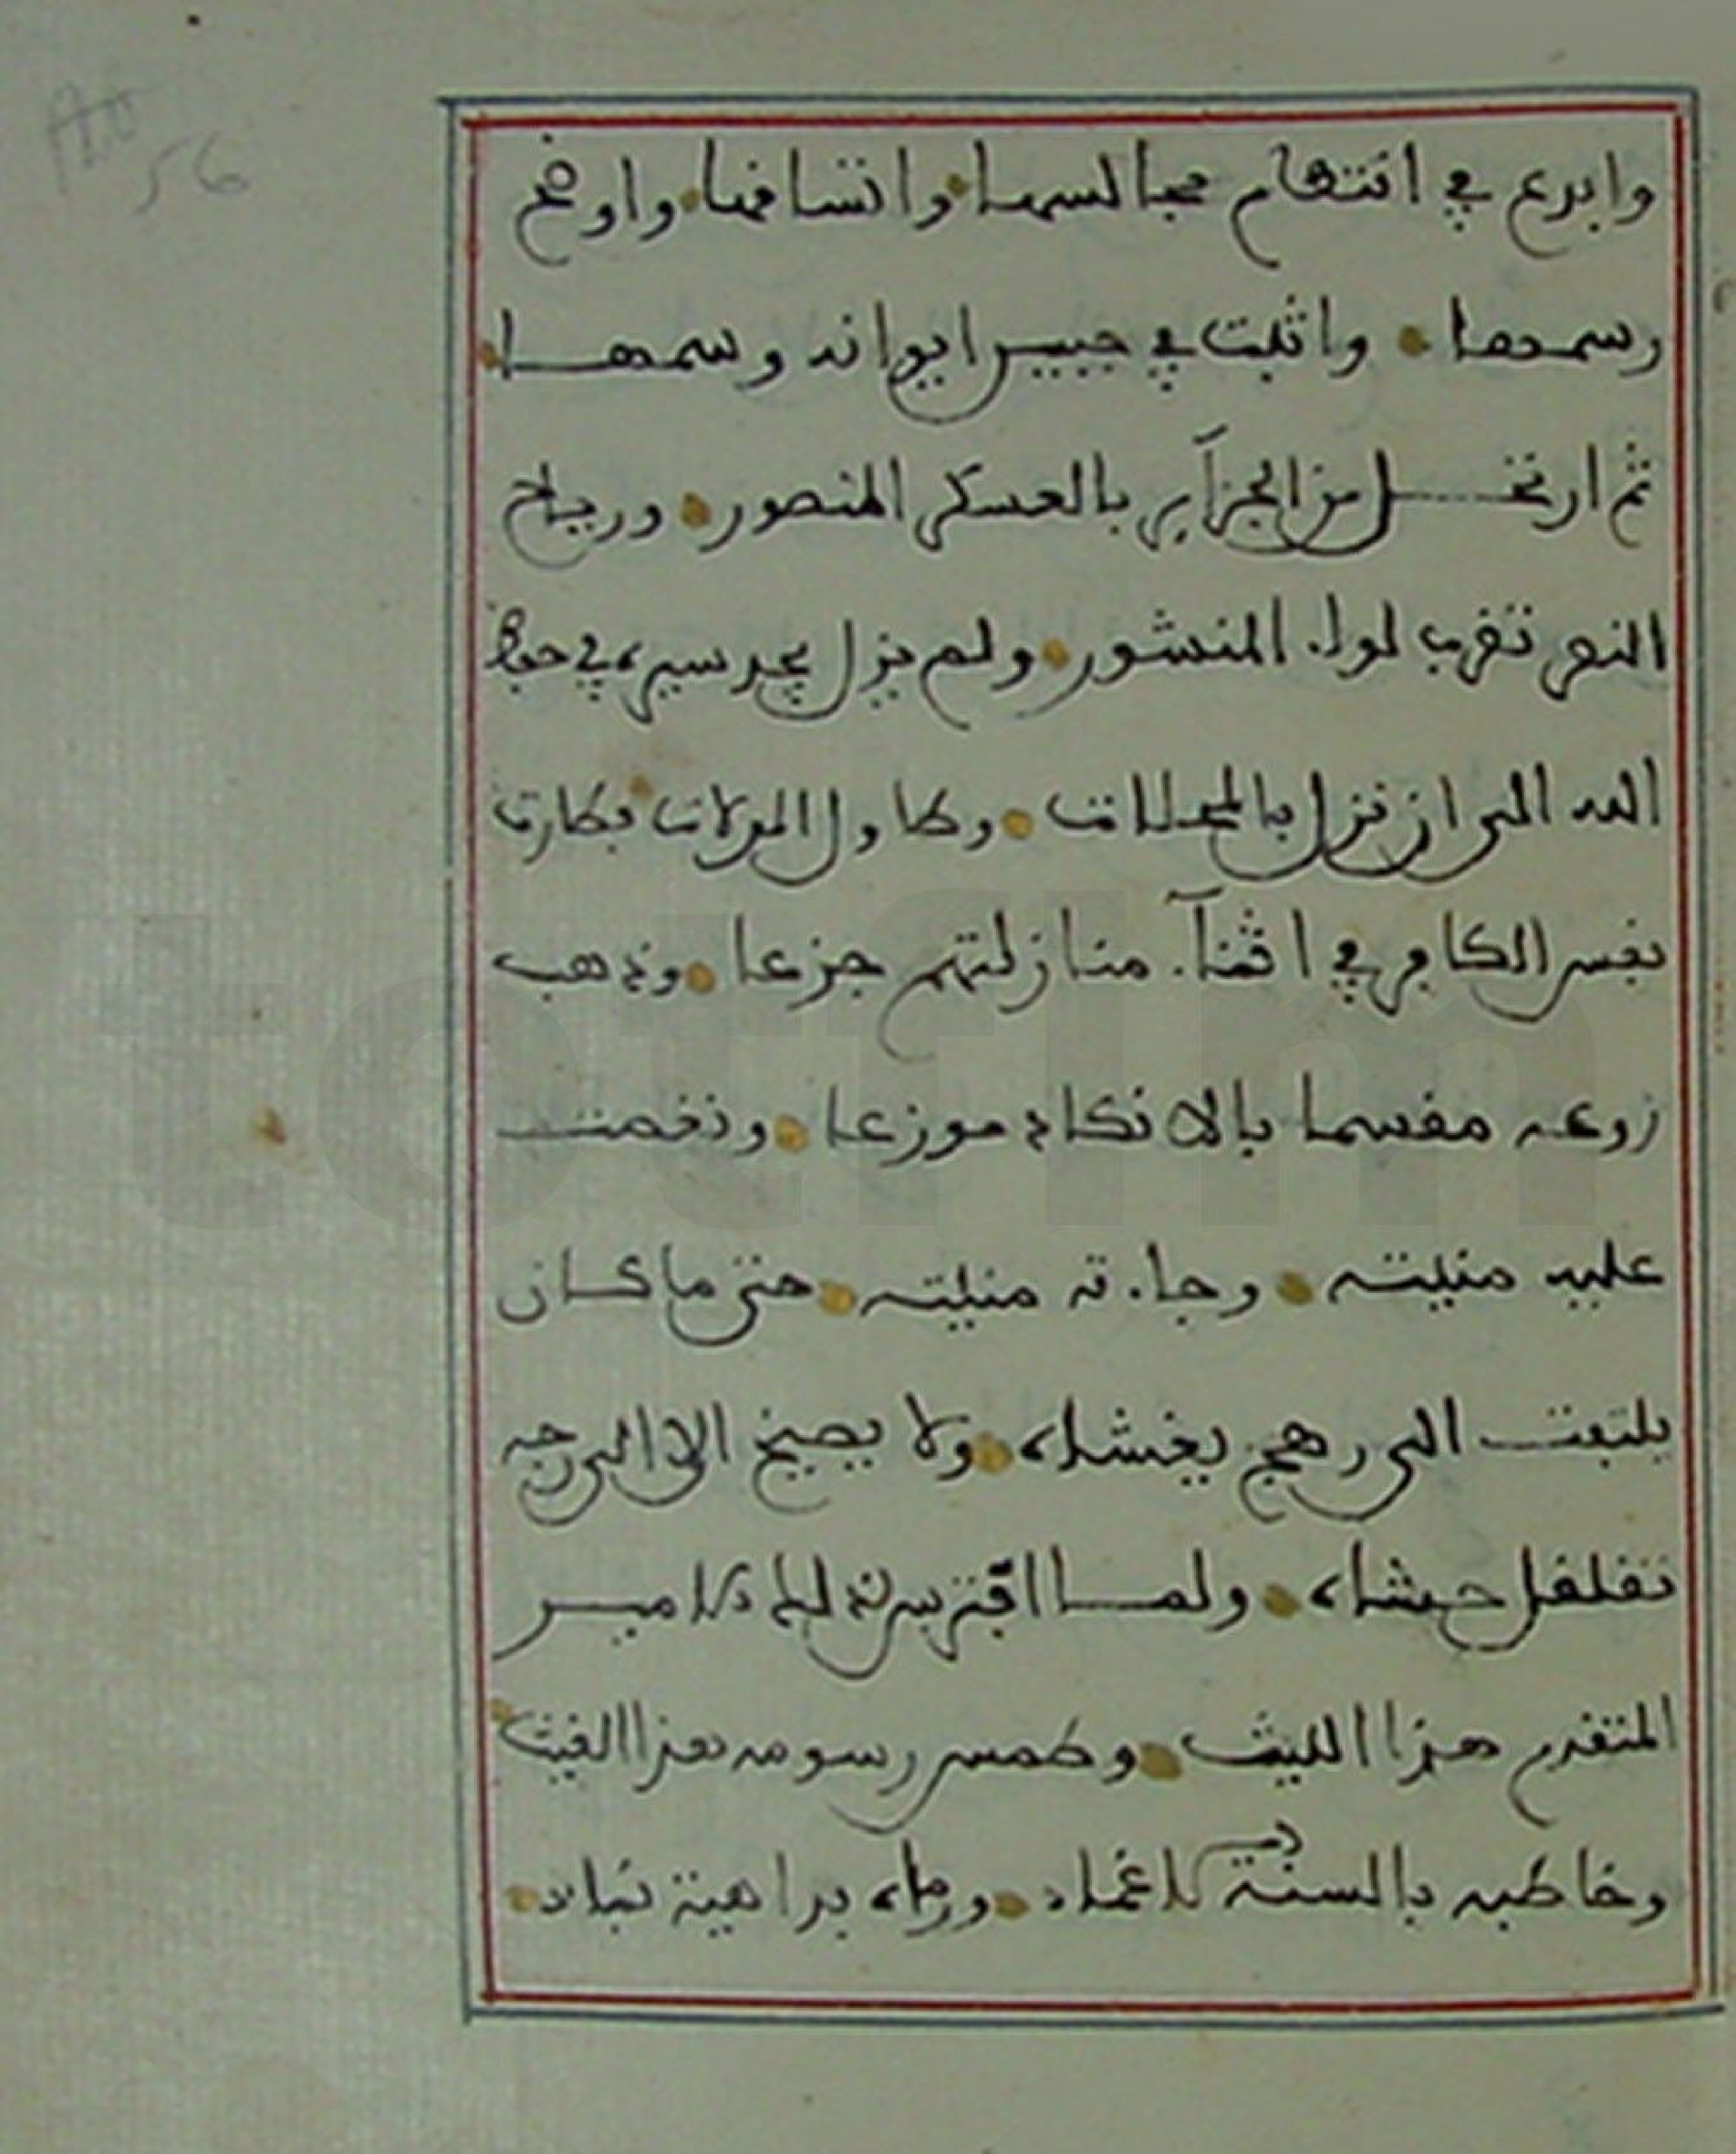 56
وابدع في انتظام مجالسها واتساقها واوضح
رسمها واثبت في جبين ايوانه وسمها
ثم ارتحل من الجزآير بالعسكر المنصور ورياح
النصر تضرب لواء المنشور ولم يزل يجد سيره في حفظ
الله الى ان نزل بالمحلات وطاول المولات فطارت
نفس الكافر في اثنآء منازلتهم جزعا وذهب
روعه مقسما بالانكاد موزعا ونغصت
عليه منيته وجاءته منيته حتى ما كان
يلتفت الى رهج يغشاه ولا يصيخ الا الى وجه
تقلقل حشاه ولما اقترس الامير
المتقدم هذا الليث وطمس رسومه هذا الغيث
وخاطبه بالسنة الاغماد ورماه براهية ناد